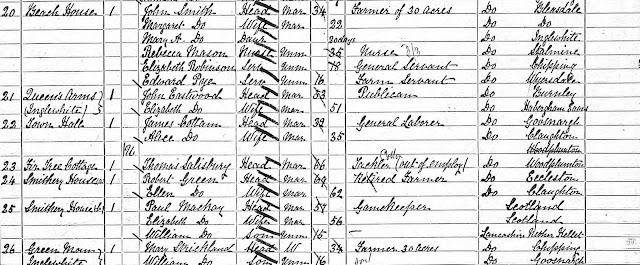 20 Beach House 1 John Smith Head Mar 34 Farmer of 30 acres Do Bleasdale
Margaret Do Wife Mar 22 Do Do
Mary A. Do Daur 20 days Do Inglewhite
Rebecca Mason Nurse Unm 35 Nurse Do Stalmine
Elizabeth Robinson Serv Unm 18 General Servant Do Chipping
Edward Pye Serv Unm 16 Farm Servant Do Wyresdale
21 Queen's Arms 1 John Eastwood Head Mar 53 Publican Do Burnley
(Inglewhite) Elizabeth Do Wife Mar 51 Do Habergham Eaves
22 Town Hall 1 James Cottam Head Mar 39 General Laborer Do Goosnargh
Alice Do Wife Mar 35 Do Claughton
Woodplumpton
23 Fir Tree Cottage 1 Thomas Salisbury Head Mar 66 Tackler (out of employ) Do Woodplumpton
24 Smithery House 1 Robert Green Head Mar 69 Retired Farmer Do Eccleston
Ellen Do Wife Mar 62 Do Claughton
25 Smithery House 1 Paul Mackay Head Mar 57 Gamekeeper Scotland
Elizabeth Do Wife Mar 56 Scotland
William Do Son Unm 15 Lancashire Nether Kellet
26 Green 1 Mary Strickland Head W 54 Farmer 30 acres Do Chipping
Inglewhite William Do Son Unm 16 Do Goosnargh